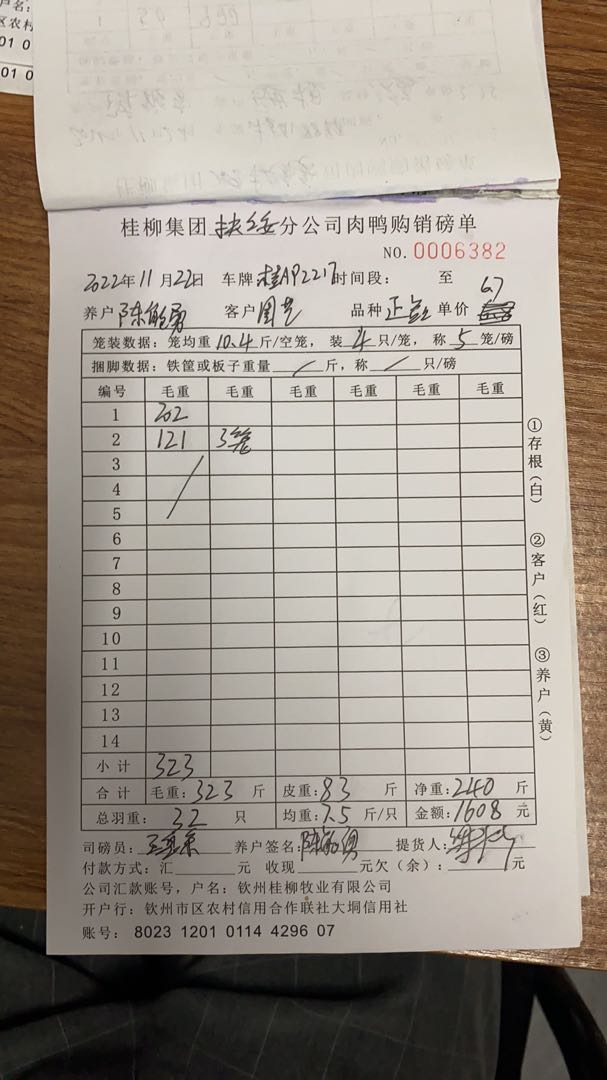 户名：
区农村
01 0
01 0
桂柳集团 扶绥 分公司肉鸭购销磅单
NO. 0006382
2022年11月22日 车牌：桂AP2217 时间段： 至
6.7
养户 陈敏勇 客户 品种 单价
笼装数据：笼均重 10.4 斤/空笼，装 4 只/笼，称 5 笼/磅
捆脚数据：铁筐或板子重量 / 斤，称 / 只/磅
编号 毛重 毛重 毛重 毛重 毛重 毛重
1 202
2 121 3笼
3
4
5
6
7
8
9
10
11
12
13
14
小计 323
合计 毛重：323 斤 皮重：83 斤 净重：240 斤
总羽重：32 只 均重：7.5 斤/只 金额：1608 元
司磅员： 养户签名：陈敏勇 提货人：
付款方式：汇 元 收现 元欠（余）： 元
公司汇款账号，户名：钦州桂柳牧业有限公司
开户行：钦州市区农村信用合作联社大垌信用社
账号： 8023 1201 0114 4296 07
①存根（白）
②客户（红）
③养户（黄）